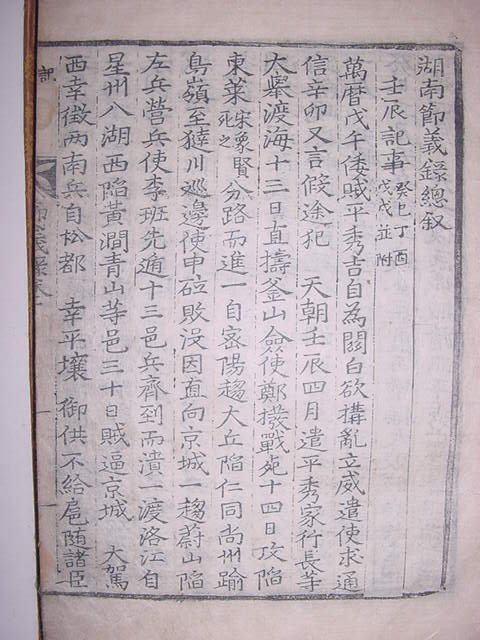 湖南節義錄總叙
壬辰記事 癸巳丁酉戊戌並附
萬曆戊午倭賊平秀吉自為關白欲搆亂立威遣使求通
信辛卯又言假途犯 天朝壬辰四月遣平秀家行長等
大舉渡海十三日直擣釜山僉使鄭撥戰死十四日攻陷
東萊宋象賢死之分路而進一自密陽趨大丘陷仁同尚州踰
鳥嶺至㺚川巡邊使申砬敗沒因直向京城一趨蔚山陷
左兵營兵使李珏先遁十三邑兵齊到而潰一渡洛江自
星州入湖西陷黃澗青山等邑三十日賊逼京城 大駕
西幸徵两南兵自松都 幸平壤 御供不給扈随諸臣